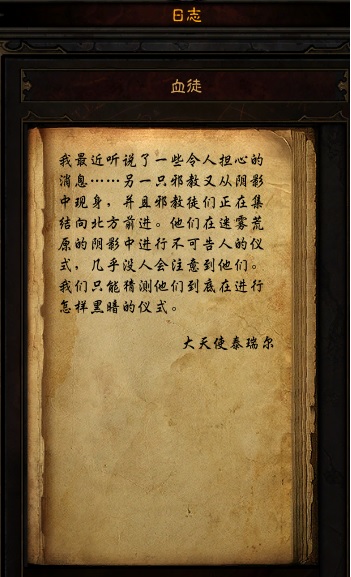 日志
血徒
我最近听说了一些令人担心的
消息……另一只邪教又从阴影
中现身，并且邪教徒们正在集
结向北方前进。他们在迷雾荒
原的阴影中进行不可告人的仪
式，几乎没人会注意到他们。
我们只能猜测他们到底在进行
怎样黑暗的仪式。
大天使泰瑞尔